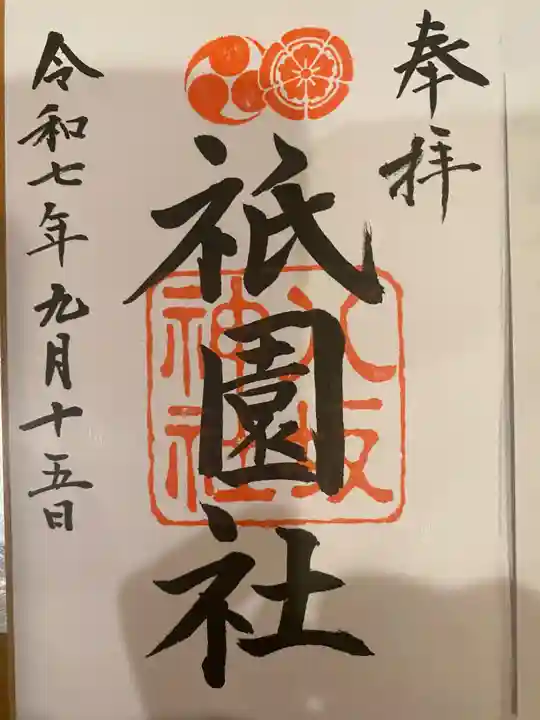 奉拝
祇園社
八坂
神社
令和七年九月十五日